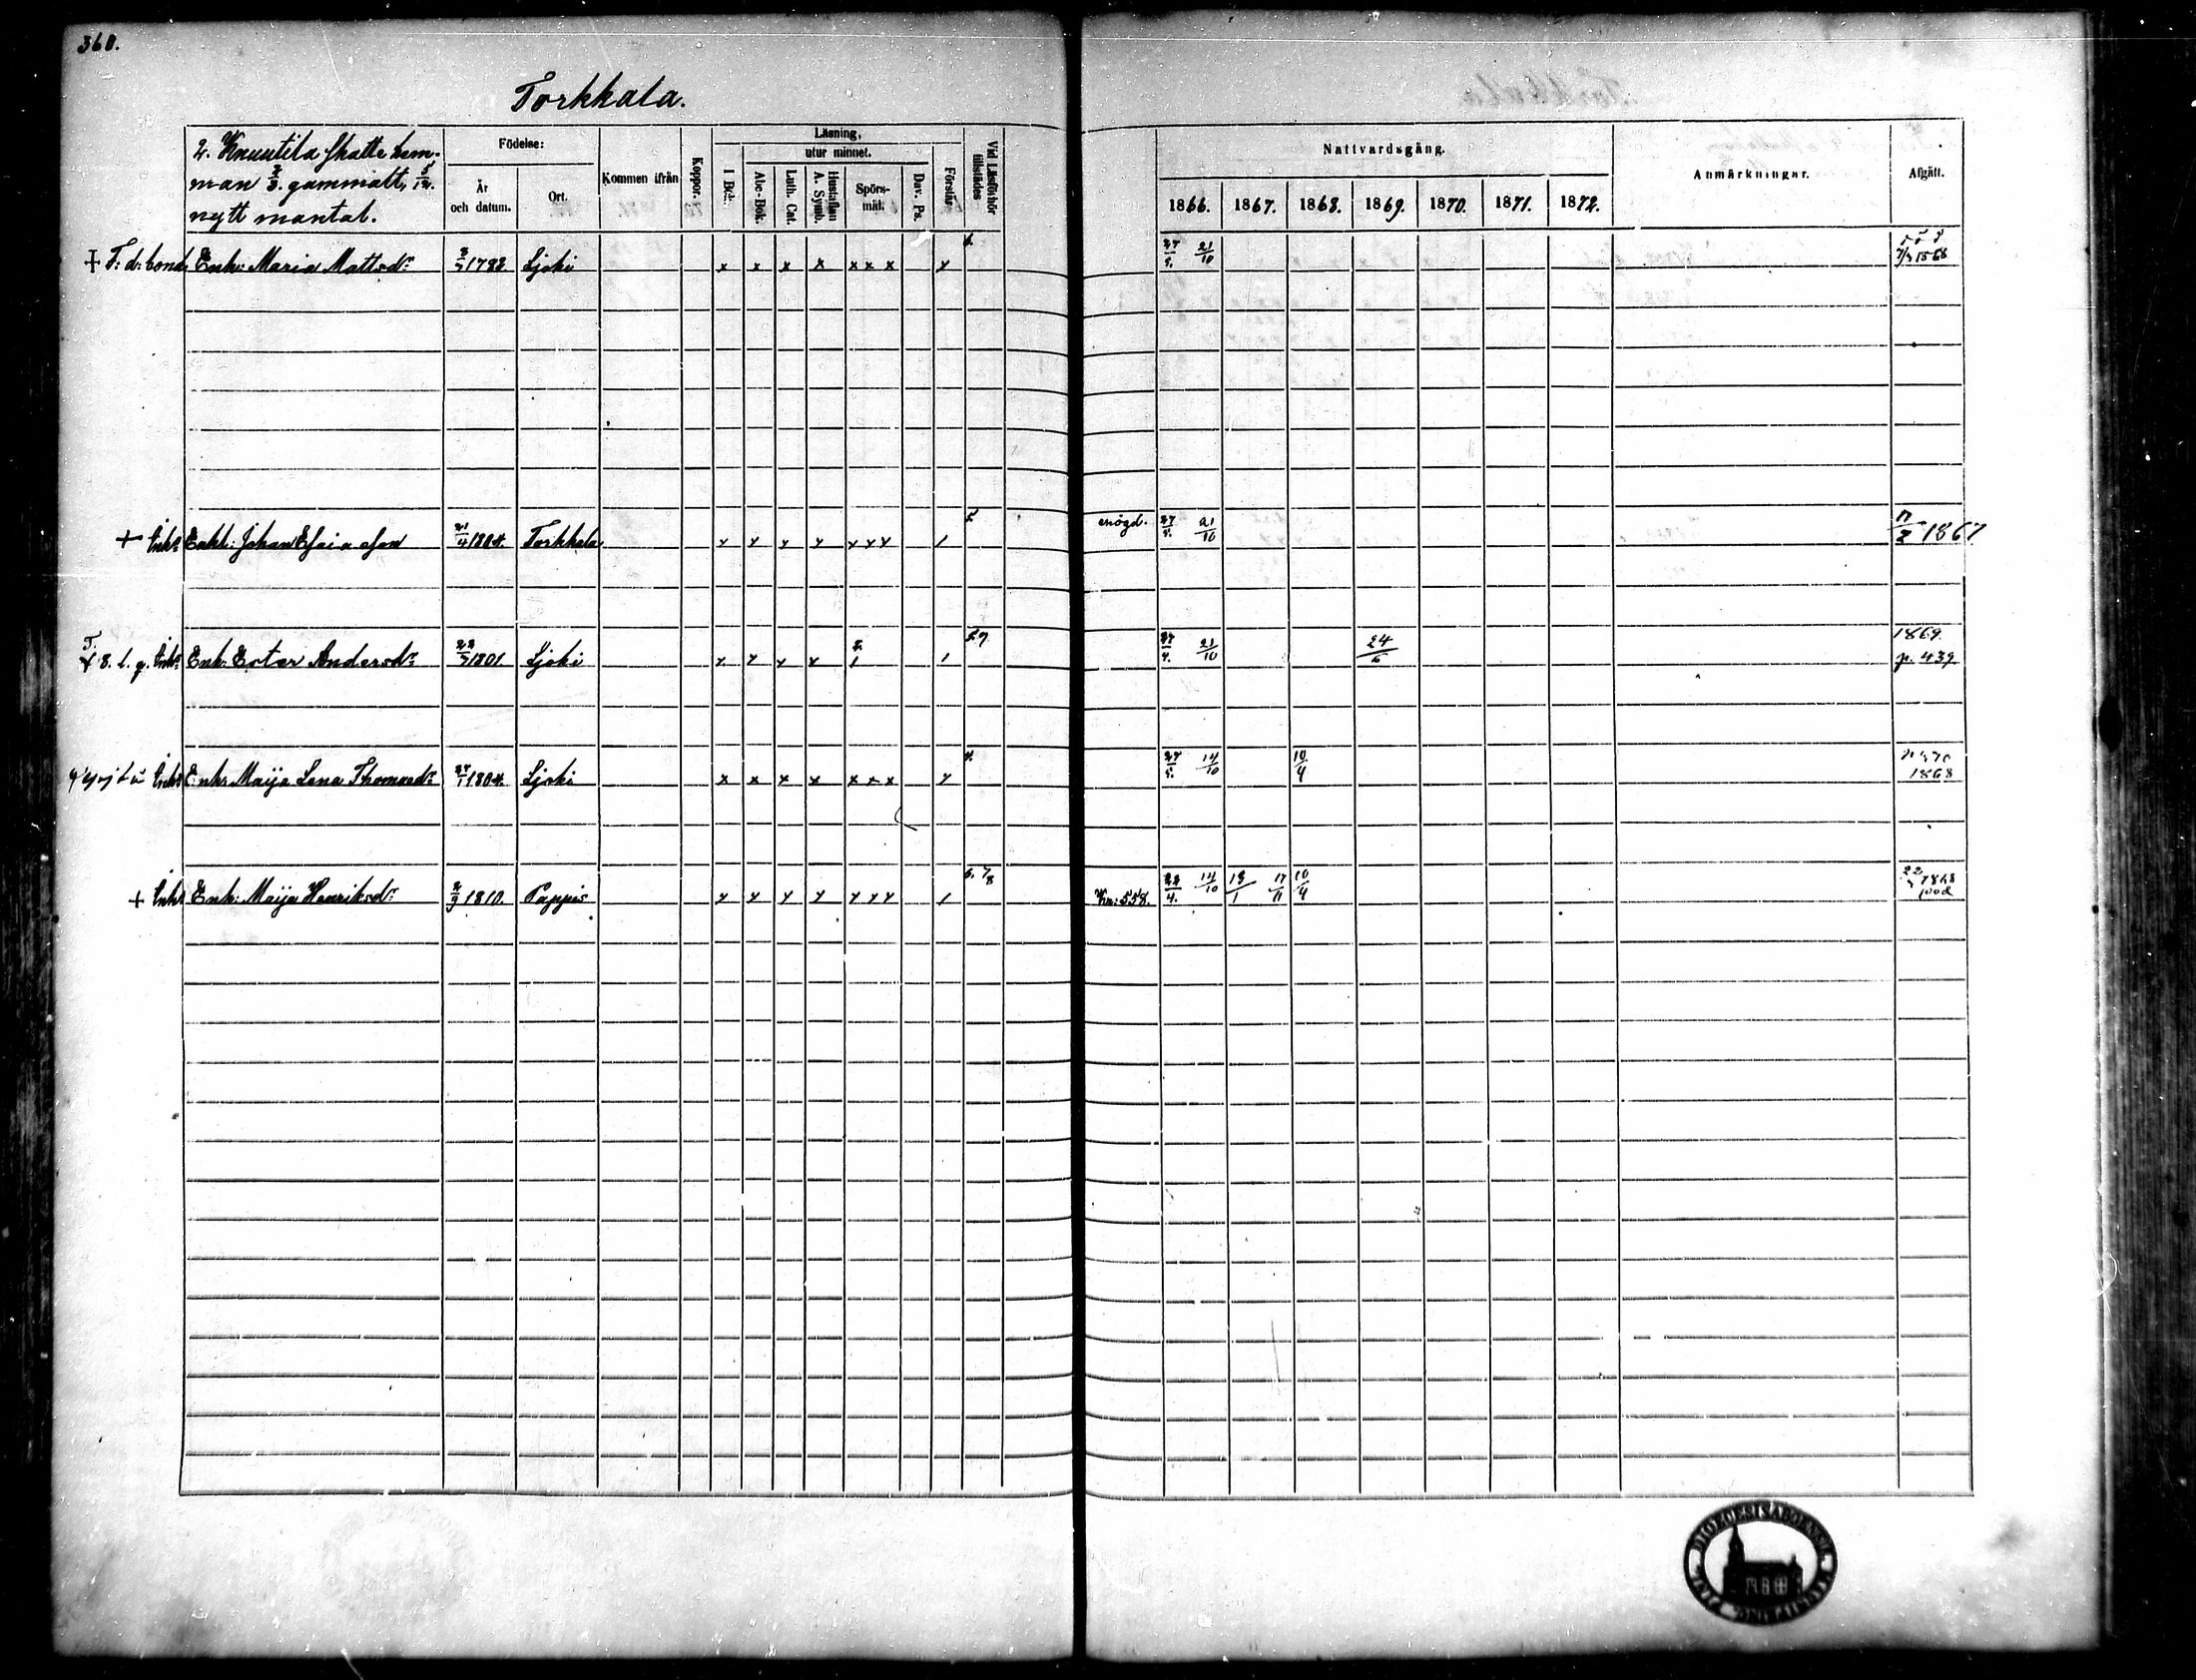 360.
Torkkala.
2. Knuutila skatte hem-
man 2/3 gammalt, 5/12.
nytt mantal.
Födelse:
År
och datum.
Ort.
Kommen ifrån
Koppor.
Läsning,
utur minnet.
I Bok.
Abc-Bok.
Luth. Cat.
Hustaflan
A. Symb.
Spörs-
mål.
Dav. Ps.
Förstår
Vid Läsförhör
tillstädes
Nattvardsgång.
1866. 1867. 1868. 1869. 1870. 1871. 1872.
Anmärkningar.
Afgått.
+ F: d: bond. Enk: Maria Mattsdr 1788 Ljoki x x x x x x x 21/10 1868
+ Enkl: Johan Esaiasson 21/4 1804. Torkkala x x x x x x x / 5 27/5. 21/10 1867
Enk: Ester Andersdr 1801. Ljoki 21/10 24/6 1869. p. 439
Enk: Maija Lena Thomasdr 1804. Ljoki x x x x x x x 14/10 10/4 1868
+ Enk: Maija Henriksdr 2/9 1810. Pappis x x x x x x x / Kn: 558. 22/4. 14/10 13/1 17/11 10/4 1868
DIOECESIS ABOENSIS